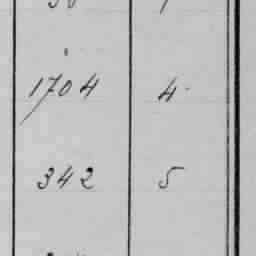 1704 4
342 5